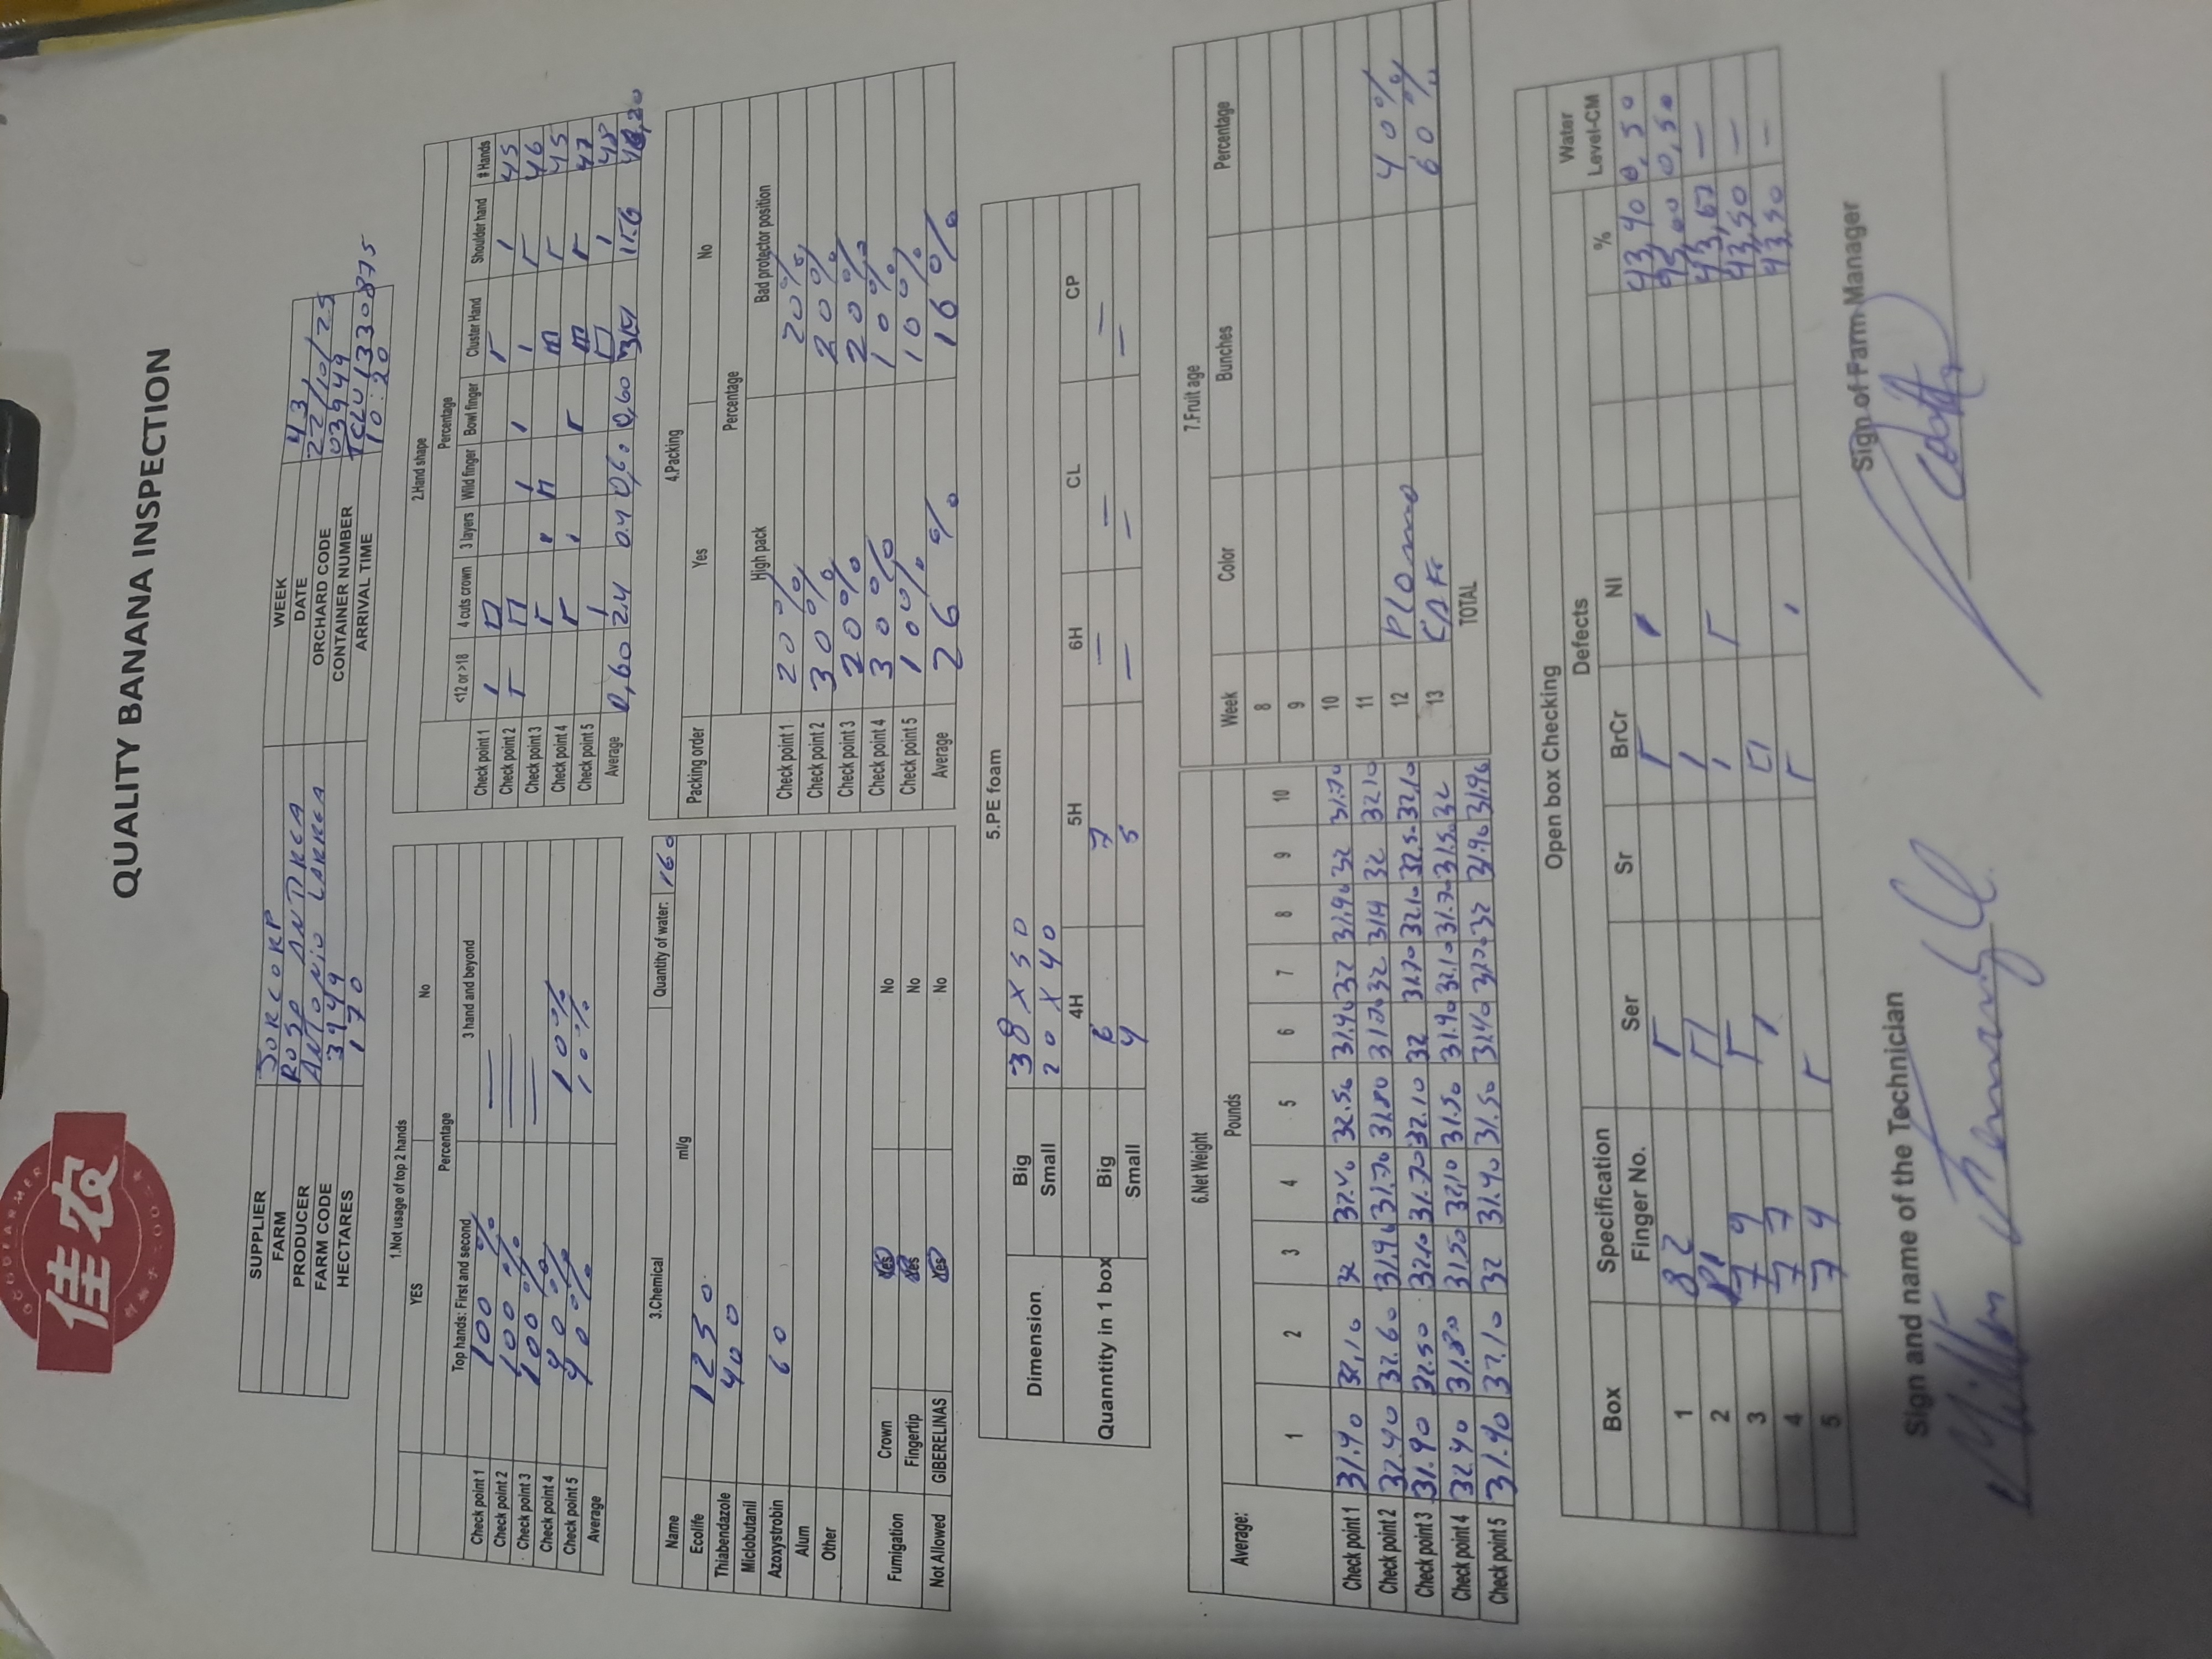 GOODFARMER
佳农
创始于二〇〇二年
QUALITY BANANA INSPECTION
SUPPLIER SORCORP WEEK 43
FARM ROSA ANDREA DATE 22/10/25
PRODUCER ANTONIO LARREA ORCHARD CODE 03949
FARM CODE 3949 CONTAINER NUMBER TCLU 1330875
HECTARES 170 ARRIVAL TIME 10:20
1.Not usage of top 2 hands
YES No
Percentage
Top hands: First and second 3 hand and beyond
Check point 1 100 % —
Check point 2 100 % —
Check point 3 100 % —
Check point 4 90 % 10 %
Check point 5 90 % 10 %
Average
2.Hand shape
Percentage
<12 or >18 4 cuts crown 3 layers Wild finger Bowl finger Cluster Hand Shoulder hand # Hands
Check point 1 45
Check point 2 46
Check point 3 45
Check point 4 47
Check point 5 48
Average 0,60 2.4 0.4 0,60 0,60
3.Chemical Quantity of water: 160
Name ml/g
Ecolife 1250
Thiabendazole 400
Miclobutanil
Azoxystrobin 60
Alum
Other
Fumigation Crown Yes No
Fingertip Yes No
Not Allowed GIBERELINAS Yes No
4.Packing
Packing order Yes No
Percentage
High pack Bad protector position
Check point 1 20% 20%
Check point 2 30% 20%
Check point 3 20% 20%
Check point 4 30% 10%
Check point 5 10% 10%
Average 26 % 16%
5.PE foam
Dimension Big 38 X 50
Small 20 X 40
4H 5H 6H CL CP
Quanntity in 1 box Big 6 7 — — —
Small 4 5 — — —
6.Net Weight
Average: Pounds
1 2 3 4 5 6 7 8 9 10
Check point 1 31.90 32,10 32 32.40 32.50 31.90 32 31.90 32 31.70
Check point 2 32.40 32.60 31.90 31.70 31.80 31.70 32 32 32.10
Check point 3 31.90 32.50 32.10 31.70 32.10 32 31.70 32.10 32.50 32.10
Check point 4 32.40 31.80 31.50 32,10 31.50 31.90 32.10 31.70 31.50 32
Check point 5 31.90 32.10 32 31.90 31.50 31.40 32 31.90 31.90
7.Fruit age
Week Color Bunches Percentage
8
9
10
11
12 Plomo 40%
13 CAFe 60%
TOTAL
Open box Checking
Box Specification Defects % Water Level-CM
Finger No. Ser Sr BrCr NI
1 82 43,40 0,50
2 81 0,50
3 79 —
4 77 43,50 —
5 74 43,50 —
Sign and name of the Technician Sign of Farm Manager
Milton